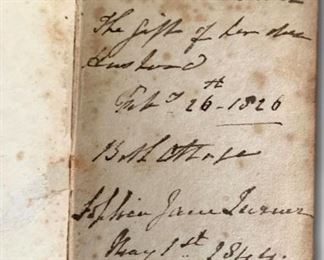 The Gift of her dear
Husband
Feby 26th - 1826
Sophia Jane Turner
May 1st 1844